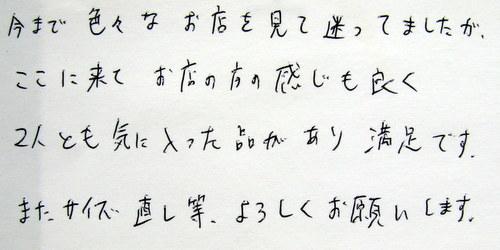 今まで色々なお店を見て迷ってましたが、
ここに来てお店の方の感じも良く
2人とも気に入った品があり満足です。
またサイズ直し等、よろしくお願いします。